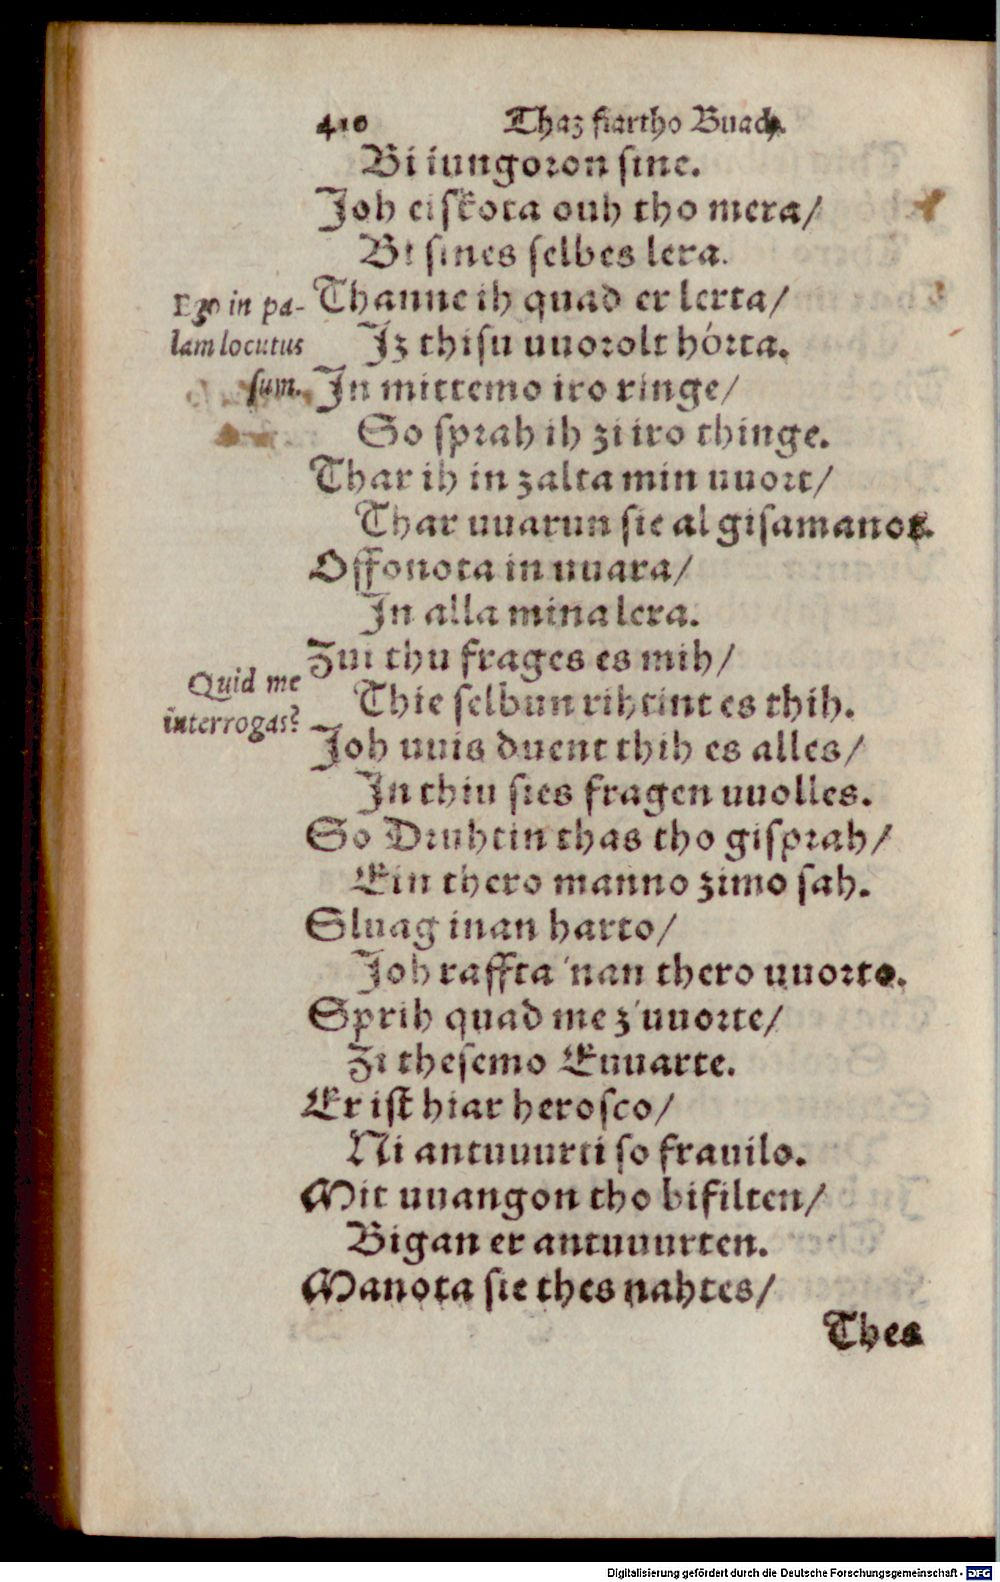 410 Thaz fiartho Buach.
Bi iungoron sine.
Joh eiskota ouh tho mera/
Bi sines selbes lera.
Thanne ih quad er lerta/
Jz thisu uuorolt hórta.
Ego in pa-
lam locutus
sum.
In mittemo iro ringe/
So sprah ih zi iro thinge.
Thar ih in zalta min uuort/
Thar uuarun sie al gisamanot.
Offonota in uuara/
In alla mina lera.
Zui thu frages es mih/
Quid me
interrogas?
Thie selbun rihtint es thih.
Joh uuis duent thih es alles/
In thiu sies fragen uuolles.
So Druhtin thas tho gisprah/
Ein thero manno zimo sah.
Sluag inan harto/
Joh raffta 'nan thero uuorto.
Sprih quad me z' uuorte/
Zi thesemo Euuarte.
Er ist hiar herosco/
Ni antuuurti so frauilo.
Mit uuangon tho bifilten/
Bigan er antuuurten.
Manota sie thes nahtes/
Thes
Digitalisierung gefördert durch die Deutsche Forschungsgemeinschaft - DFG